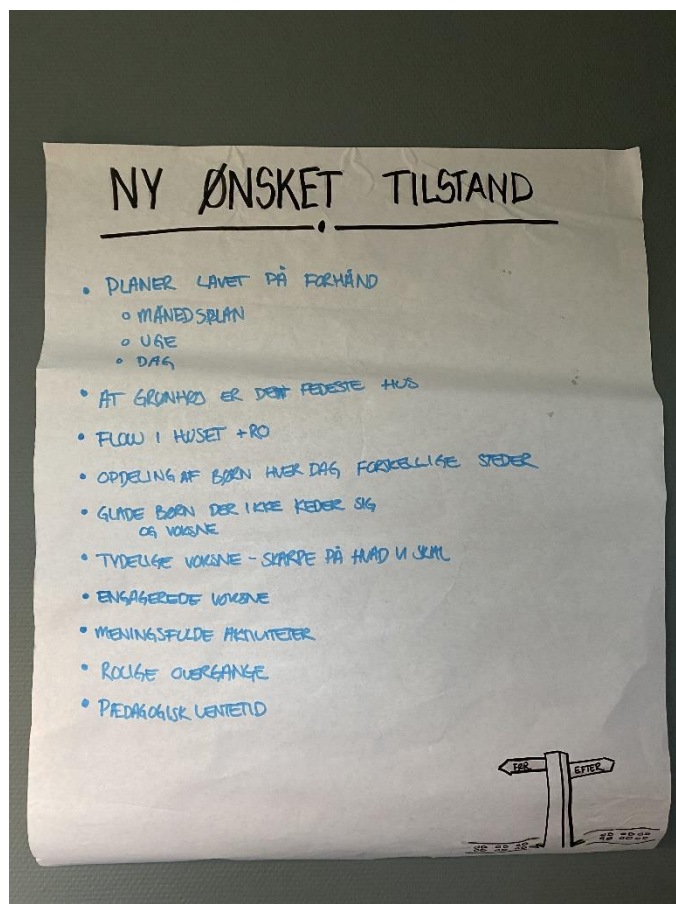 NY ØNSKET TILSTAND
• PLANER LAVET PÅ FORHÅND
o MÅNEDSPLAN
o UGE
o DAG
• AT GRØNHØJ ER DET FEDESTE HUS
• FLOW I HUSET + RO
• OPDELING AF BØRN HVER DAG FORSKELLIGE STEDER
• GLADE BØRN DER IKKE KEDER SIG
OG VOKSNE
• TYDELIGE VOKSNE - SKARPE PÅ HVAD VI SKAL
• ENGAGEREDE VOKSNE
• MENINGSFULDE AKTIVITETER
• ROLIGE OVERGANGE
• PÆDAGOGISK VENTETID
FØR
EFTER